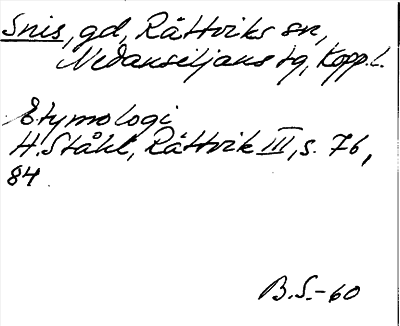 Snis, gd, Rättviks sn,
Nedansiljans tg, Kopp. l.
Etymologi
H. Ståhl, Rättvik III, s. 76,
84
B.S.-60